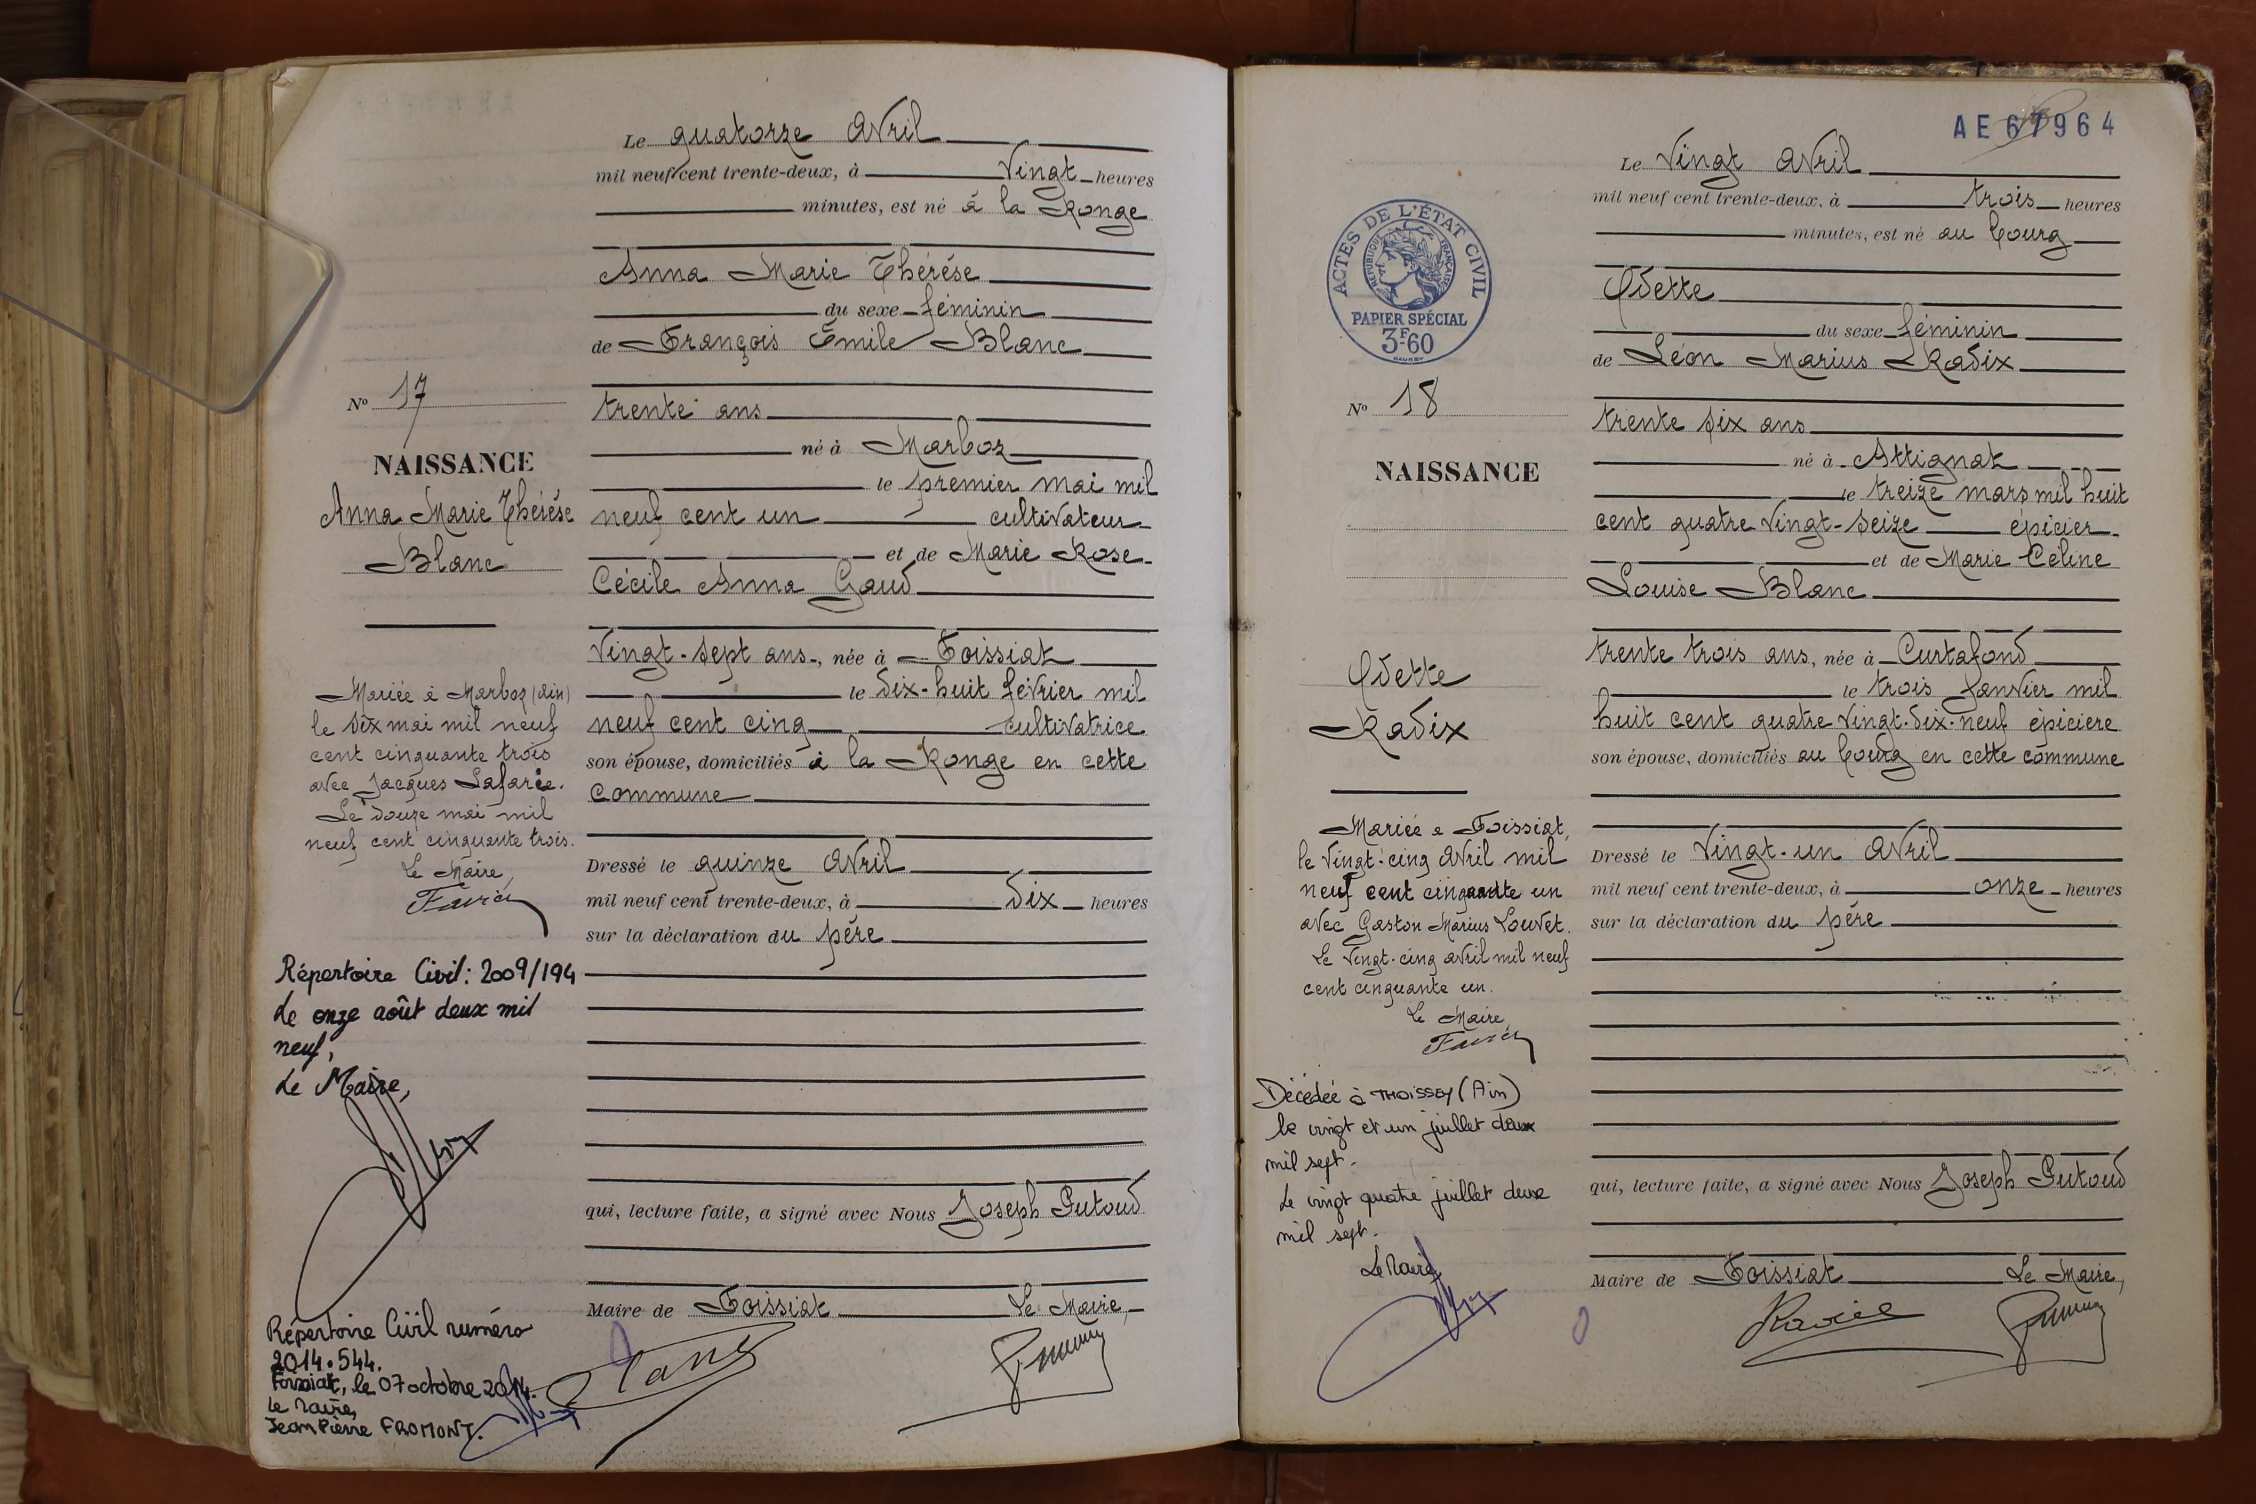 Le quatorze Avril
mil neuf cent trente-deux, à Vingt heures
minutes, est né à la Ronge
Anna Marie Thérèse
du sexe féminin
de François Emile Blanc
trente ans
né à Marboz
le premier mai mil
neuf cent un cultivateur
et de Marie Rose
Cécile Anna Gaud
Vingt-sept ans, née à Foissiat
le dix-huit février mil
neuf cent cinq cultivatrice
son épouse, domiciliés à la Ronge en cette
commune
Dressé le quinze Avril
mil neuf cent trente-deux, à dix heures
sur la déclaration du père
qui, lecture faite, a signé avec Nous Joseph Putoud
Maire de Foissiat Le Maire,
No 17
NAISSANCE
Anna Marie Thérèse
Blanc
Mariée à Marboz (Ain)
le dix mai mil neuf
cent cinquante trois
avec Jacques Lafarie.
Le douze mai mil
neuf cent cinquante trois.
Le Maire,
Favier
Répertoire Civil: 2009/194
Le onze août deux mil
neuf,
Le Maire,
Répertoire Civil numéro
2014.544.
Foissiat, le 07 octobre 2014.
Le Maire,
Jean Pierre FROMONT.
AE 67964
Le Vingt Avril
mil neuf cent trente-deux, à trois heures
minutes, est né au bourg
Odette
du sexe féminin
de Léon Marius Radix
trente six ans
né à Attignat
le treize mars mil huit
cent quatre vingt-seize épicier
et de Marie Céline
Louise Blanc
trente trois ans, née à Curtafond
le trois Janvier mil
huit cent quatre vingt-dix-neuf épicière
son épouse, domiciliés au bourg en cette commune
Dressé le Vingt-un Avril
mil neuf cent trente-deux, à onze heures
sur la déclaration du père
qui, lecture faite, a signé avec Nous Joseph Putoud
Maire de Foissiat Le Maire,
Radix
ACTES DE L'ÉTAT CIVIL
RÉPUBLIQUE FRANÇAISE
PAPIER SPÉCIAL
3F60
No 18
NAISSANCE
Odette
Radix
Mariée à Foissiat,
le Vingt-cinq Avril mil
neuf cent cinquante un
avec Gaston Marius Louvet.
Le Vingt-cinq avril mil neuf
cent cinquante un.
Le Maire
Favier
Décédée à THOISSEY (Ain)
le vingt et un juillet deux
mil sept.
Le vingt quatre juillet deux
mil sept.
Le Maire